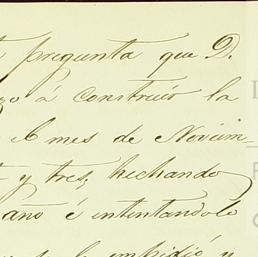 pregunta que D.
á construir la
mes de Noviem-
y tres, hechando
año é intentandolo
impidió y